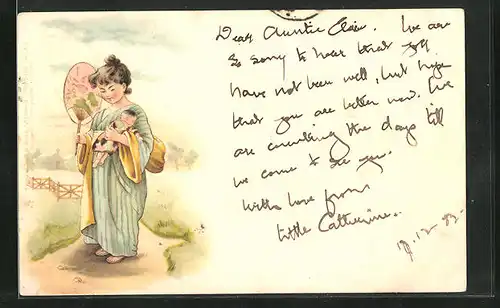 Dear Auntie Clair. We are
so sorry to hear that you
have not been well, but hope
that you are better now. We
are counting the days till
we come to see you.
With love from
little Catherine.